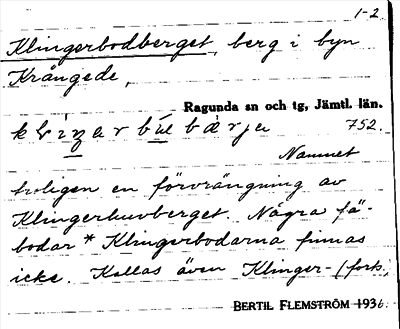 1-2
Klingerbodberget, berg i byn
Krångede,
Ragunda sn och tg, Jämtl. län.
752.
Namnet
troligen en förvrängning av
Klingerhuvberget. Några fä-
bodar * Klingerbodarna finnas
icke. Kallas även Klinger- (forts.,
BERTIL FLEMSTRÖM 1936.